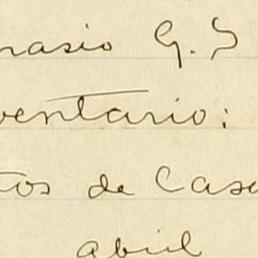 nasio G. S
ventario:
tos de Casa
abril